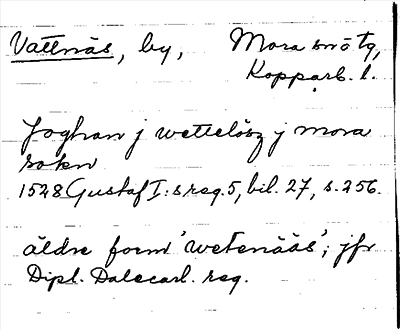 Vattnäs, by, Mora snötg,
Kopparb. l.
Joghan j wettelösz j mora
sokn
1528 Gustaf I:s reg. 5, bil. 27, s. 256.
äldre form 'wetenääs'; jfr
Dipl. Dalecarl. reg.